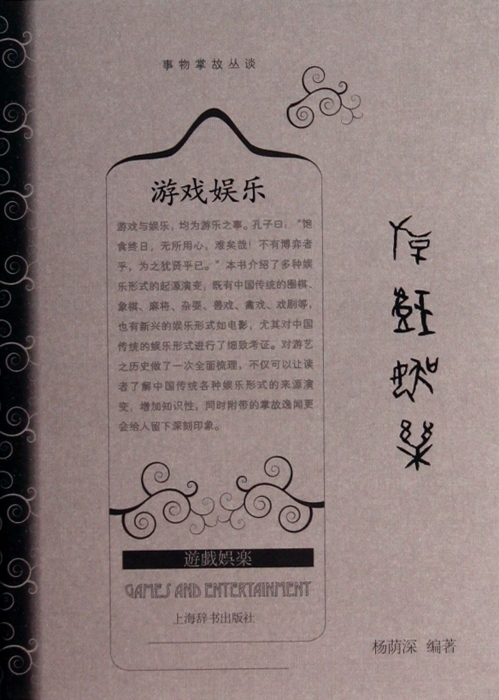 事物掌故丛谈
游戏娱乐
游戏与娱乐，均为游乐之事。孔子曰：“饱
食终日，无所用心，难矣哉！不有博弈者
乎，为之犹贤乎已。”本书介绍了多种娱
乐形式的起源演变，既有中国传统的围棋、
象棋、麻将、杂耍、兽戏、禽戏、戏剧等，
也有新兴的娱乐形式如电影，尤其对中国
传统的娱乐形式进行了细致考证。对游艺
之历史做了一次全面梳理，不仅可以让读
者了解中国传统各种娱乐形式的来源演
变，增加知识性，同时附带的掌故逸闻更
会给人留下深刻印象。
遊戯娯楽
GAMES AND ENTERTAINMENT
上海辞书出版社
杨荫深 编著